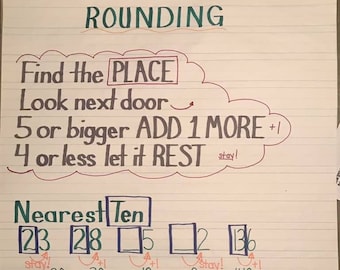 ROUNDING
Find the PLACE
Look next door
5 or bigger ADD 1 MORE +1
4 or less let it REST stay!
Nearest Ten
23 28 5 2 136
stay! +1 +1 stay! +1